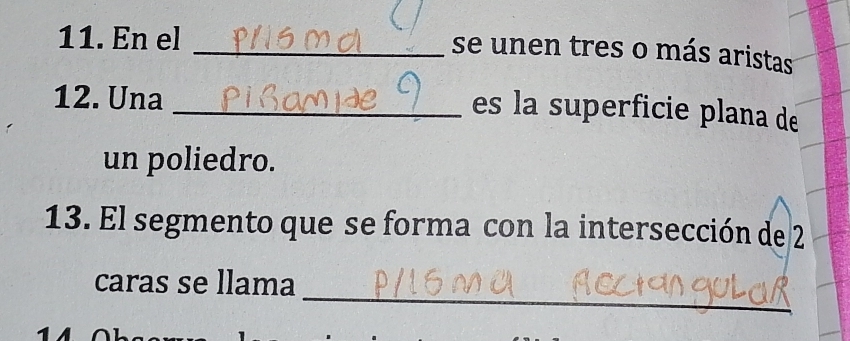 11. En el prisma se unen tres o más aristas
12. Una piramide es la superficie plana de
un poliedro.
13. El segmento que se forma con la intersección de 2
caras se llama prisma Rectangular